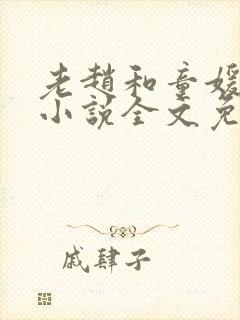 老赵和童媛
小说全文免
戚肆子